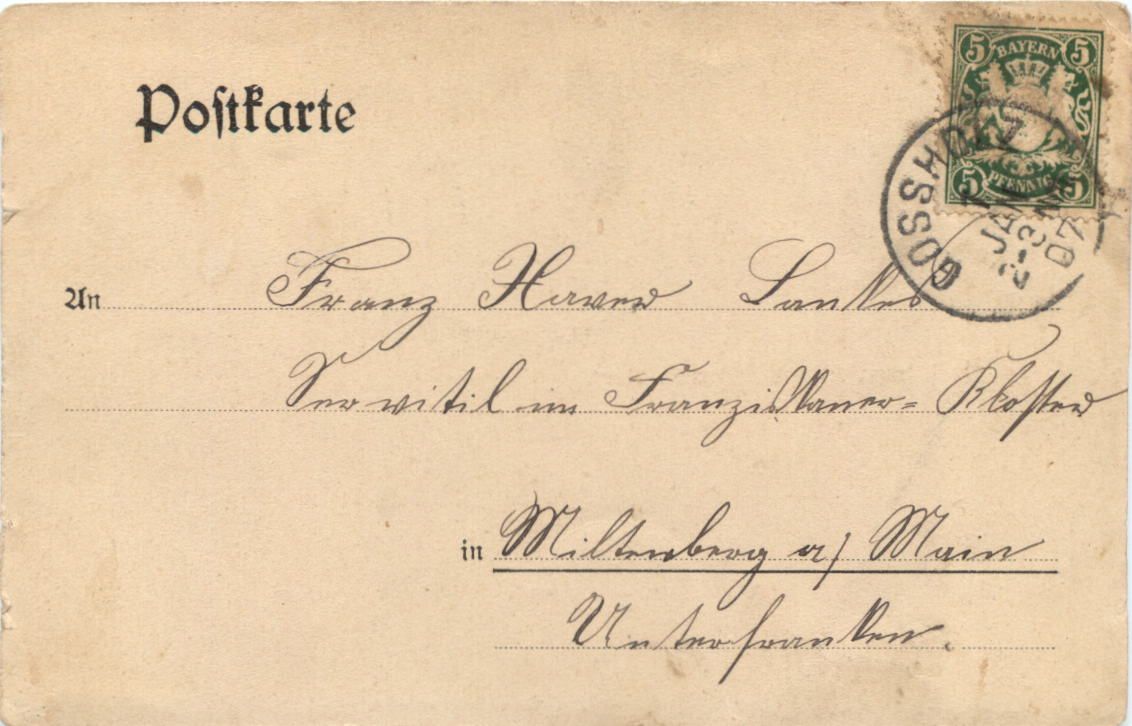 Postkarte
5 BAYERN 5
5 PFENNIG 5
GOSSHOLZ
2 JAN
07
An Franz Xaver Lankes
Servitil im Franziskaner-Kloster
in Miltenberg a/ Main
Unterfranken.